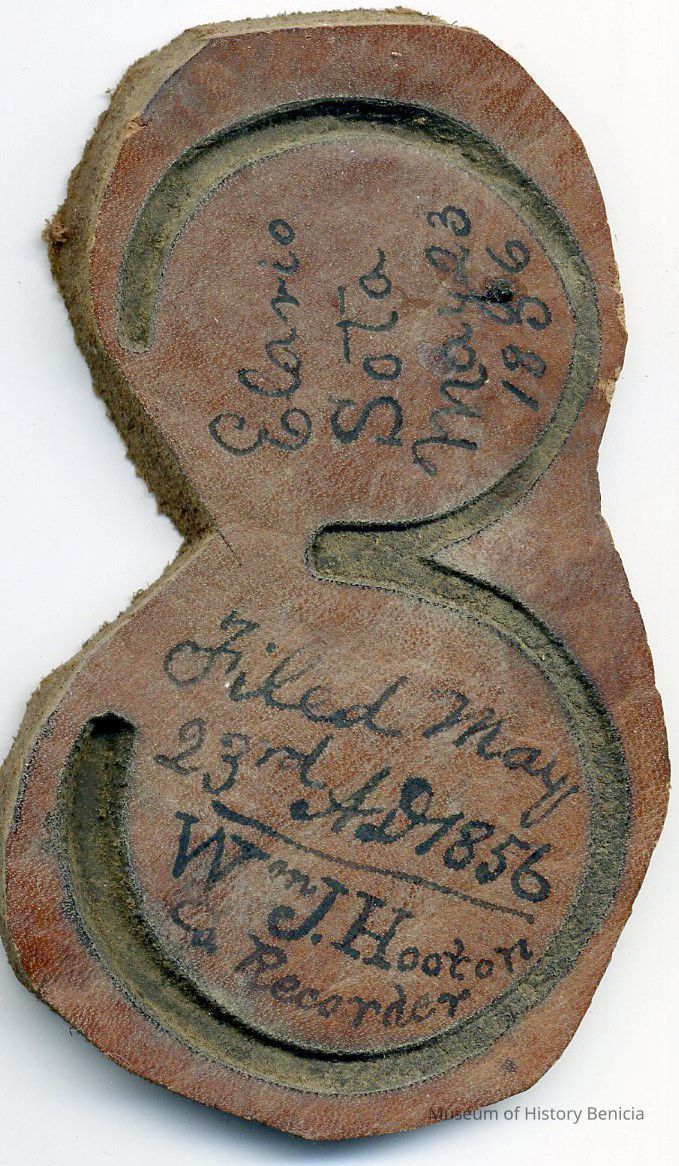 Elario
Soto
May 23
1856
Filed May
23rd AD 1856
Wm J. Hooton
Co Recorder
Museum of History Benicia